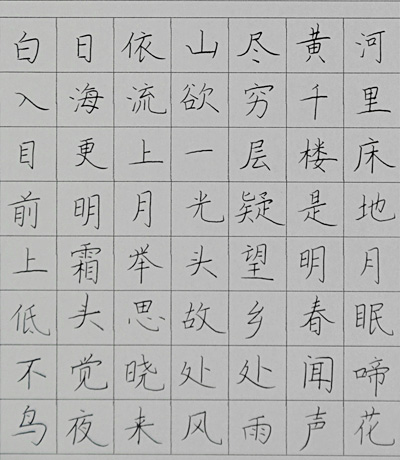 白日依山尽黄河
入海流欲穷千里
目更上一层楼床
前明月光疑是地
上霜举头望明月
低头思故乡春眠
不觉晓处处闻啼
鸟夜来风雨声花